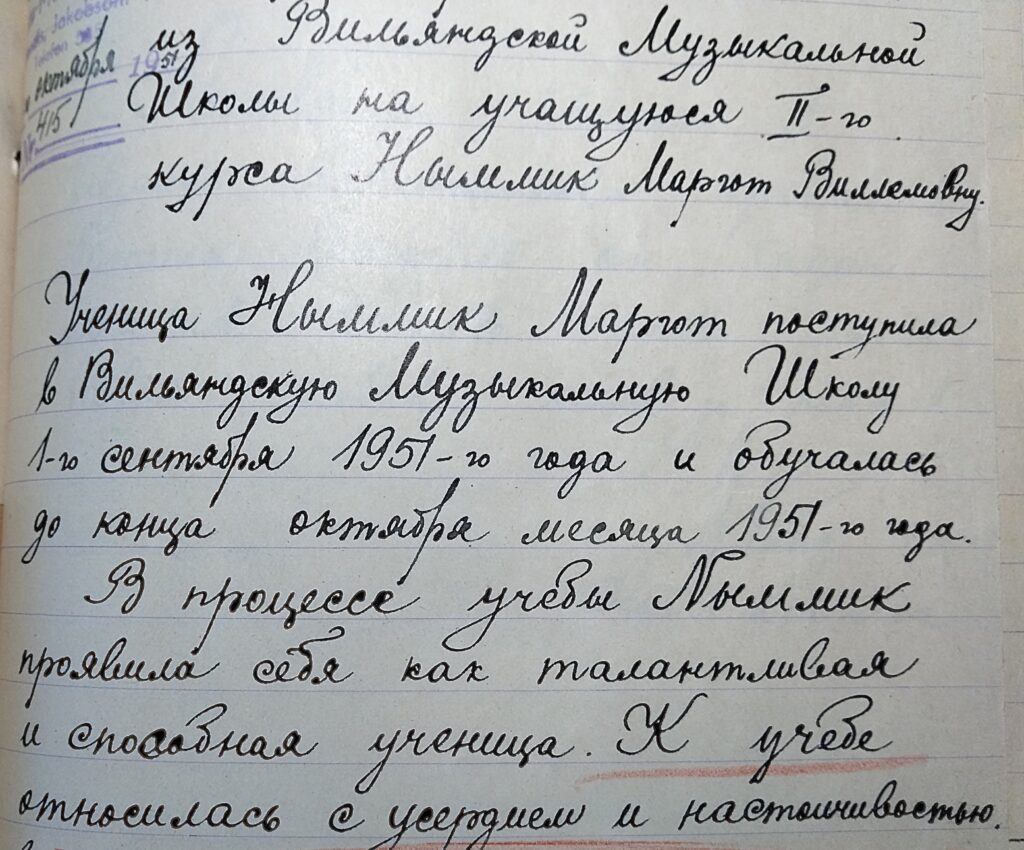 Jakobsoni
Telefon
октября 1951
415
из Вильяндской Музыкальной
Школы на учащуюся II-го
курса Ныммик Маргот Виллемовну.
Ученица Ныммик Маргот поступила
в Вильяндскую Музыкальную Школу
1-го сентября 1951-го года и обучалась
до конца октября месяца 1951-го года.
В процессе учебы Nыммик
проявила себя как талантливая
и способная ученица. К учебе
относилась с усердием и настоичивостью.